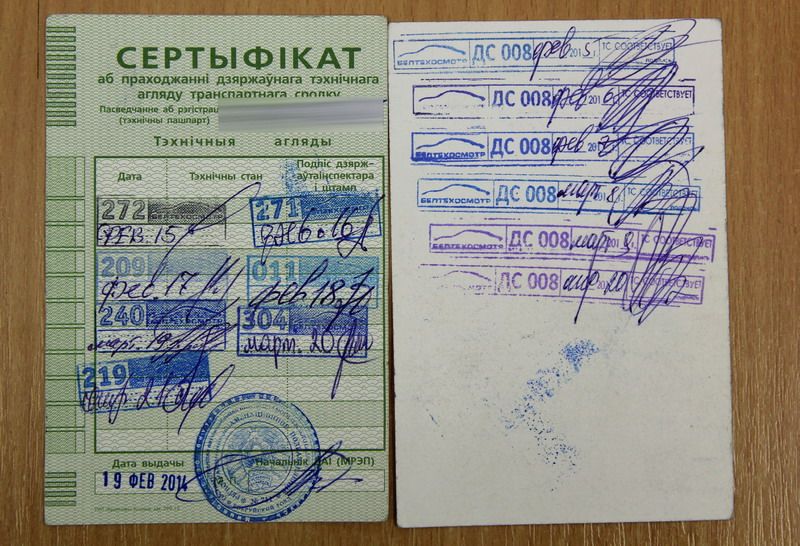 СЕРТЫФІКАТ
аб праходжанні дзяржаўнага тэхнічнага
агляду транспартнага сродку
Пасведчанне аб рэгістрац
(тэхнічны пашпарт)
Тэхнічныя агляды
Дата Тэхнічны стан Подпіс дзярж-
аўтаінспектара
і штамп
272 БЕЛТЕХОСМОТР 271
фев. 15 фев. 16
209 011
фев. 17 фев 18
240 304
март. 19 март. 20
219
Дата выдачы Начальнік ДАІ (МРЭП)
19 ФЕВ 2014
БЕЛТЕХОСМОТР ДС 008 фев 2015 ТС СООТВЕТСТВУЕТ
ДС 008 фев 2016 ТС СООТВЕТСТВУЕТ
БЕЛТЕХОСМОТР ДС 008 фев 201
БЕЛТЕХОСМОТР ДС 008 март 201 ТС СООТВЕТСТВУЕТ
БЕЛТЕХОСМОТР ДС 008 март. 9 ТС СООТВЕТСТВУЕТ
ДС 008 20 ТС СООТВЕТСТВУЕТ